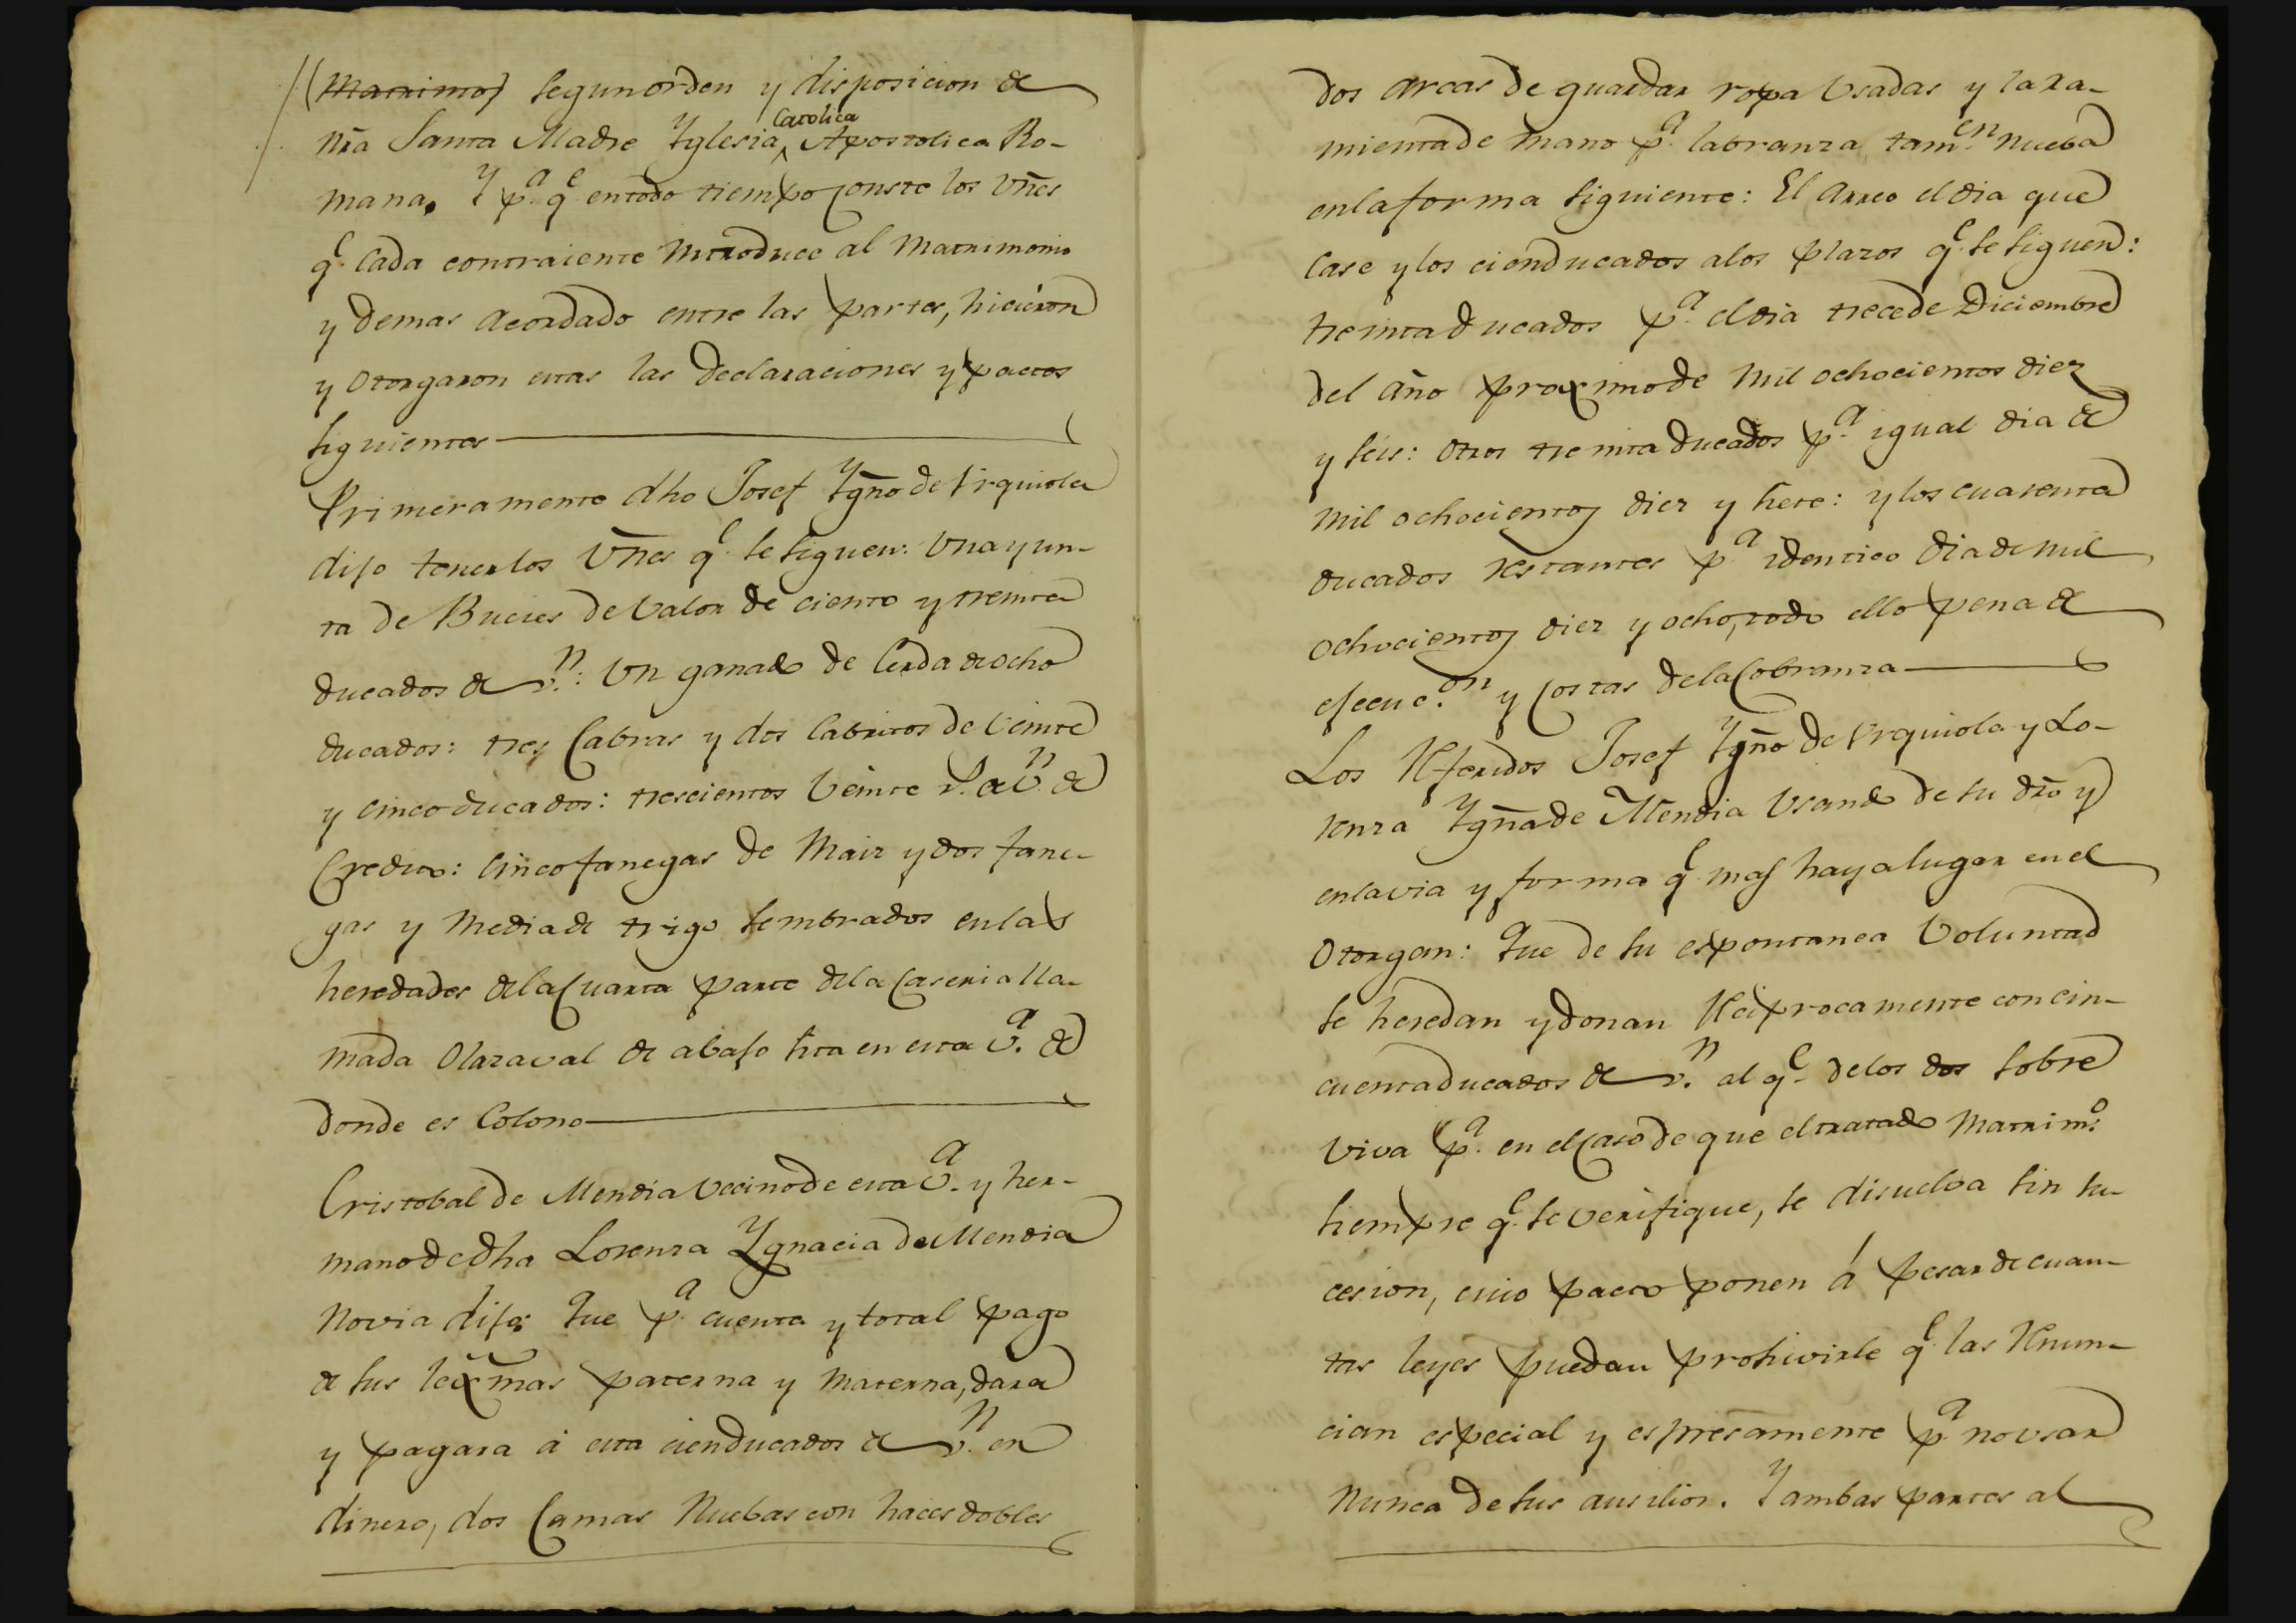 (Matrimo) segun orden y disposicion de
nr̃a Santa Madre Yglesia Catolica Apostolica Ro-
mana. Y pª qᵉ en todo tiempo conste los vñes
qᵉ cada contraiente introduce al Matrimonio
y demas acordado entre las partes, hicieron
y otorgaron estas las declaraciones y pactos
siguientes
Primeramente dho Josef Ygño de Urquiola
dijo tener los Vñes qᵉ se siguen: Una yun-
ta de Bueies de valor de ciento y treinta
ducados de v.ⁿ: Un ganado de Cerda de ocho
ducados: tres Cabras y dos Cabritos de veinte
y cinco ducados: trescientos veinte r.ˢ de v.ⁿ de
Credito: Cinco fanegas de Maiz y dos fane-
gas y media de trigo sembrados en las
heredades de la Cuarta parte de la Caseria lla-
mada Olazaval de abajo sita en esta v.ª de
donde es Colono
Cristobal de Mendia vecino de esta v.ª y her-
mano de dha Lorenza Ygnacia de Mendia
Novia dijo: Que pª cuenta y total pago
de sus lex̃mas paterna y materna, dara
y pagara á esta cien ducados de v.ⁿ en
dinero, dos Camas Nuebas con haces dobles
dos arcas de guardar ropa usadas y la ra-
mienta de mano pª labranza tam.ᵉⁿ nueba
en la forma siguiente: El arreo el dia que
case y los cien ducados a los plazos qᵉ se siguen:
treinta ducados pª el dia trece de Diciembre
del año proximo de mil ochocientos diez
y seis: otros treinta ducados pª igual dia de
mil ochocientos diez y siete: y los cuarenta
ducados restantes pª identico dia de mil
ochocientos diez y ocho, todo ello pena de
ejecuc.ᵒⁿ y costas de la Cobranza
Los Referidos Josef Ygño de Urquiola y Lo-
renza Ygña de Mendia usando de su dr̃o y
en la via y forma qᵉ mas haya lugar en el
Otorgan: Que de su espontanea Voluntad
se heredan y donan Reciprocamente con cin-
cuenta ducados de v.ⁿ al qᵉ de los dos sobre
viva pª en el caso de que el tratado Matrim.º
siempre qᵉ se verifique, se disuelva sin su-
cesion, cuio pacto ponen á pesar de cuan-
tas leyes puedan prohivirle qᵉ las Renun-
cian especial y espresamente pª no usar
Nunca de sus ausilios. Y ambas partes al